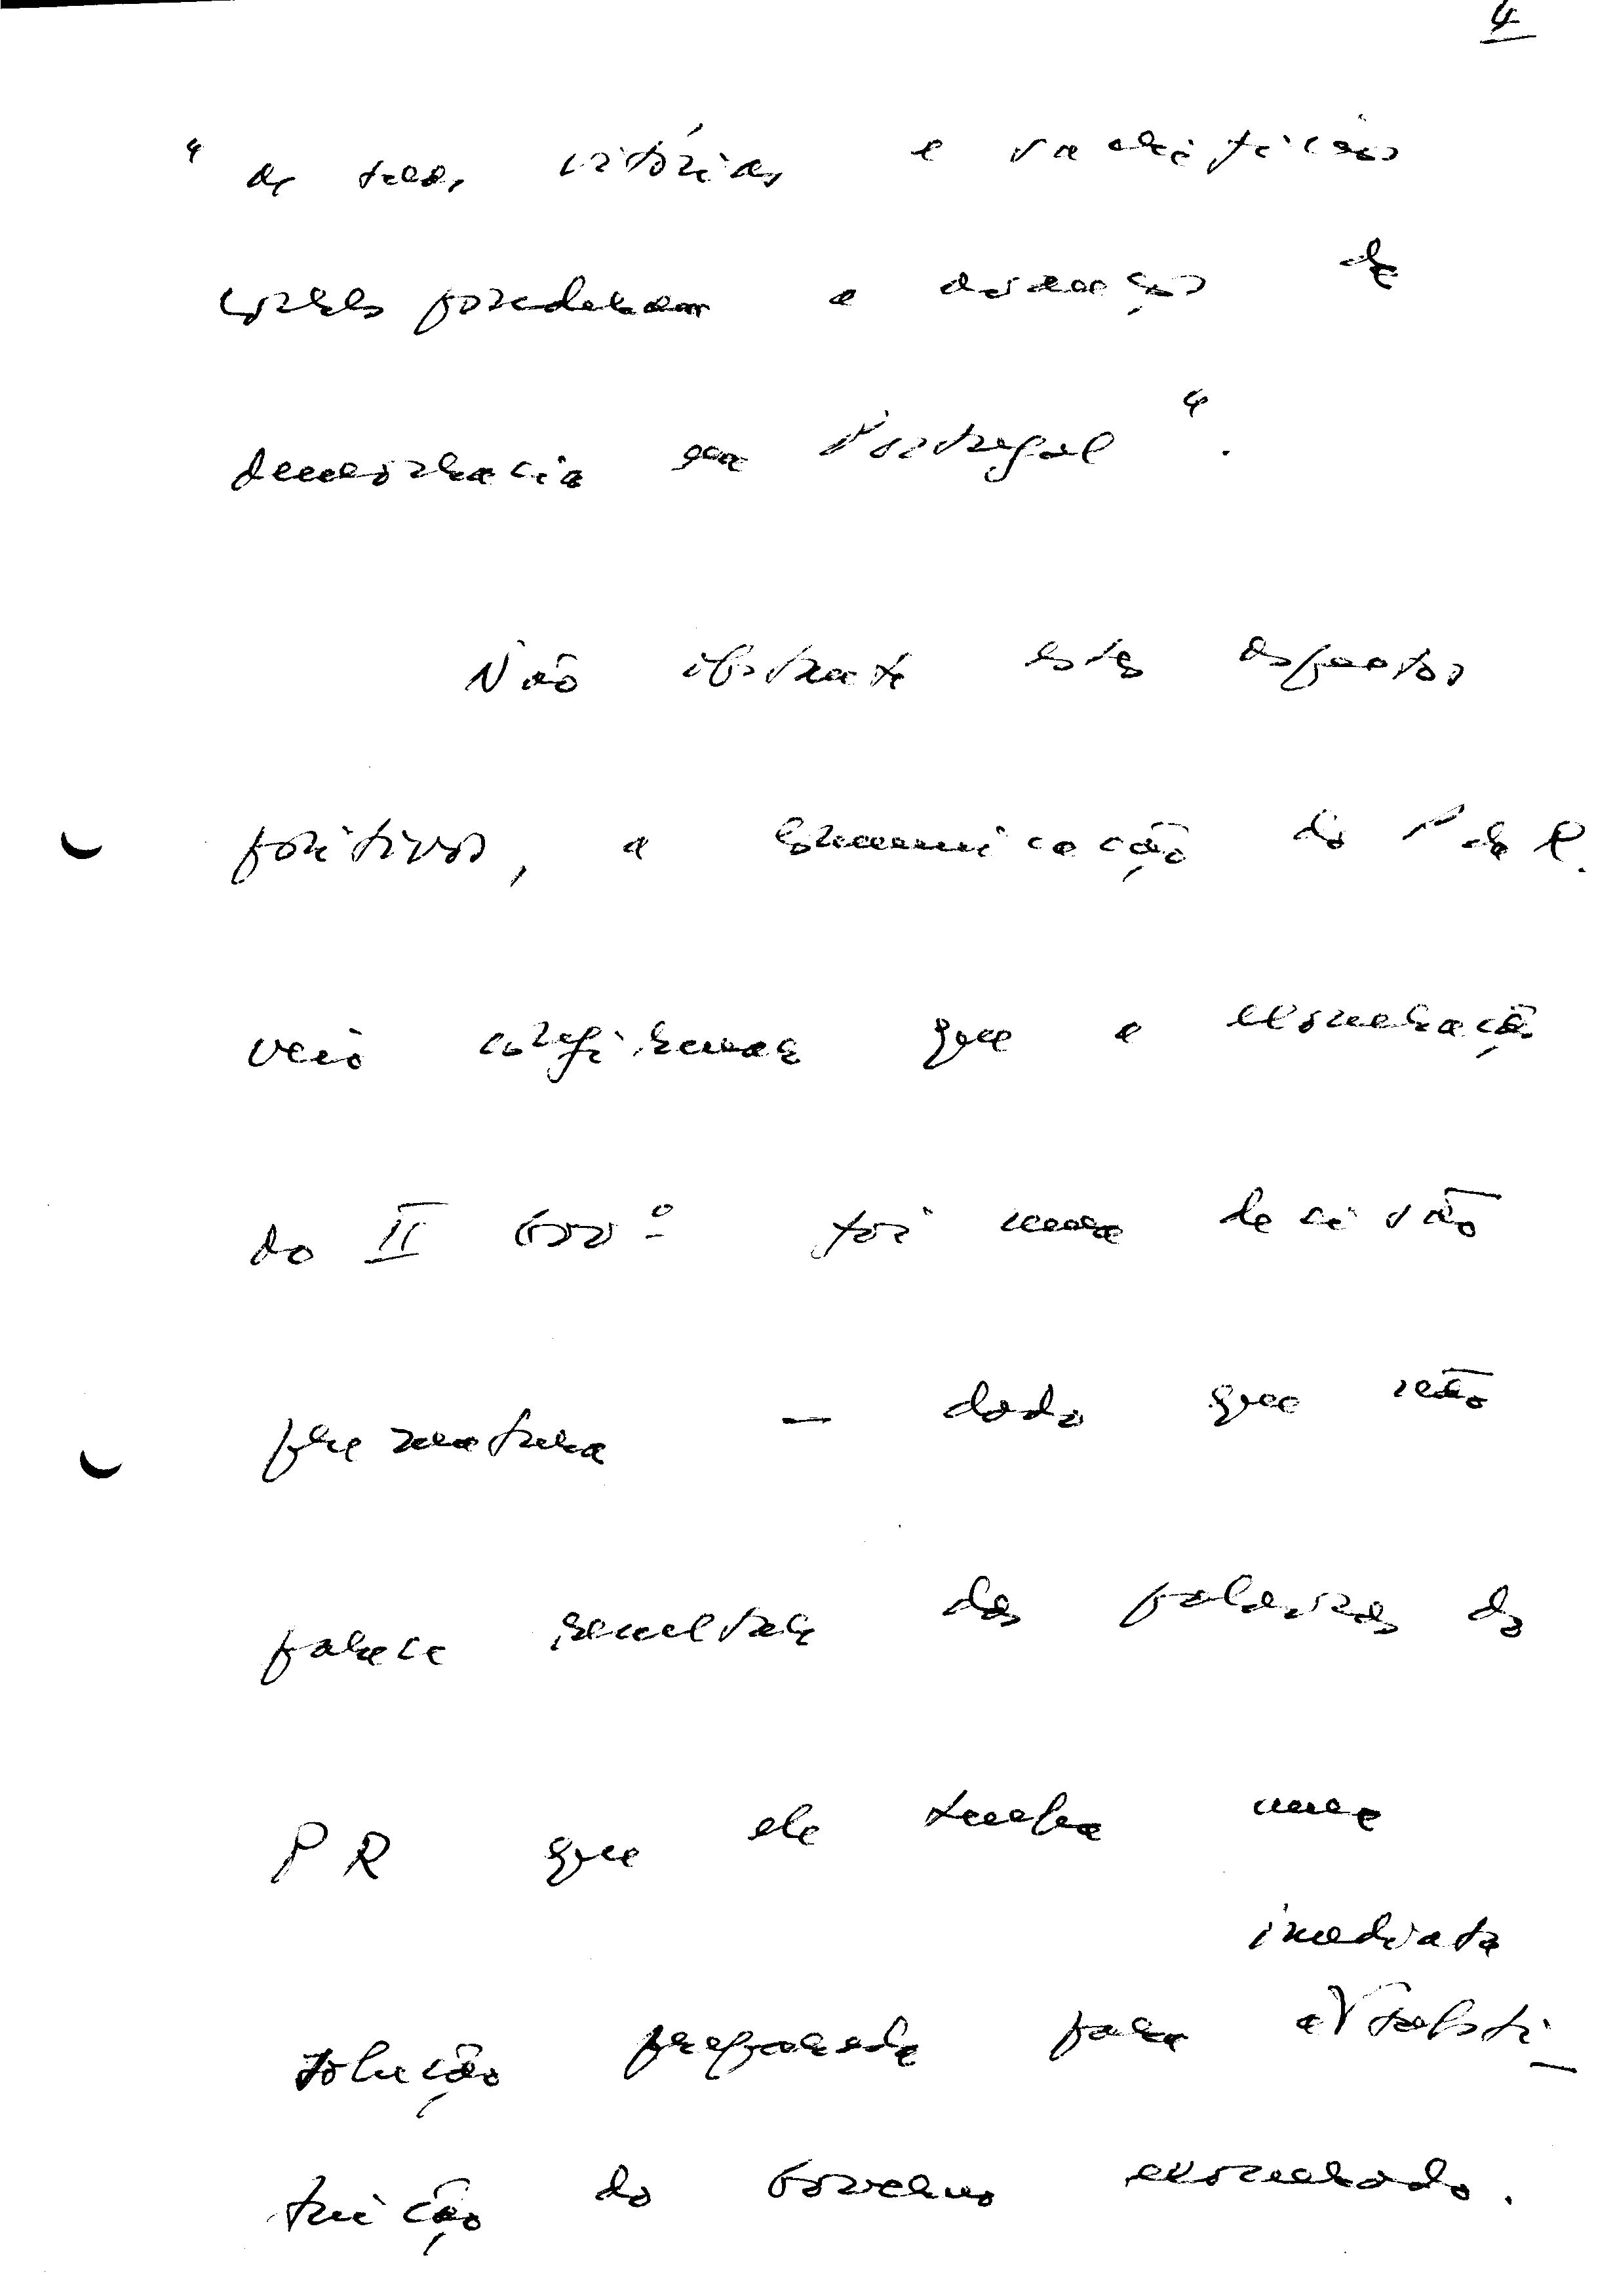 4
"as suas vitórias e sacrifícios
correspondeu o avanço da
democracia em Portugal".
Não obstante estes aspectos
positivos, a comunicação do P da R.
veio confirmar que a exoneração
do II Govº foi uma decisão
prematura — dado que não
parece resultar das palavras do
PR que ele tenha uma
imediata
solução preparada para a substi-
tuição do Governo exonerado.